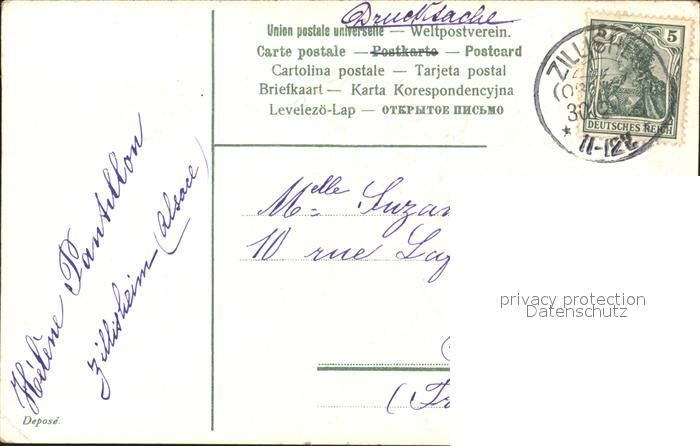 Drucksache
Union postale universelle — Weltpostverein.
Carte postale — Postkarte — Postcard
Cartolina postale — Tarjeta postal
Briefkaart — Karta Korespondencyjna
Levelezö-Lap — ОТКРЫТОЕ ПИСЬМО
5
DEUTSCHES REICH
11-12V
Melle Suzan
10 rue
Hélène
Zillisheim (Alsace)
Deposé.
privacy protection
Datenschutz